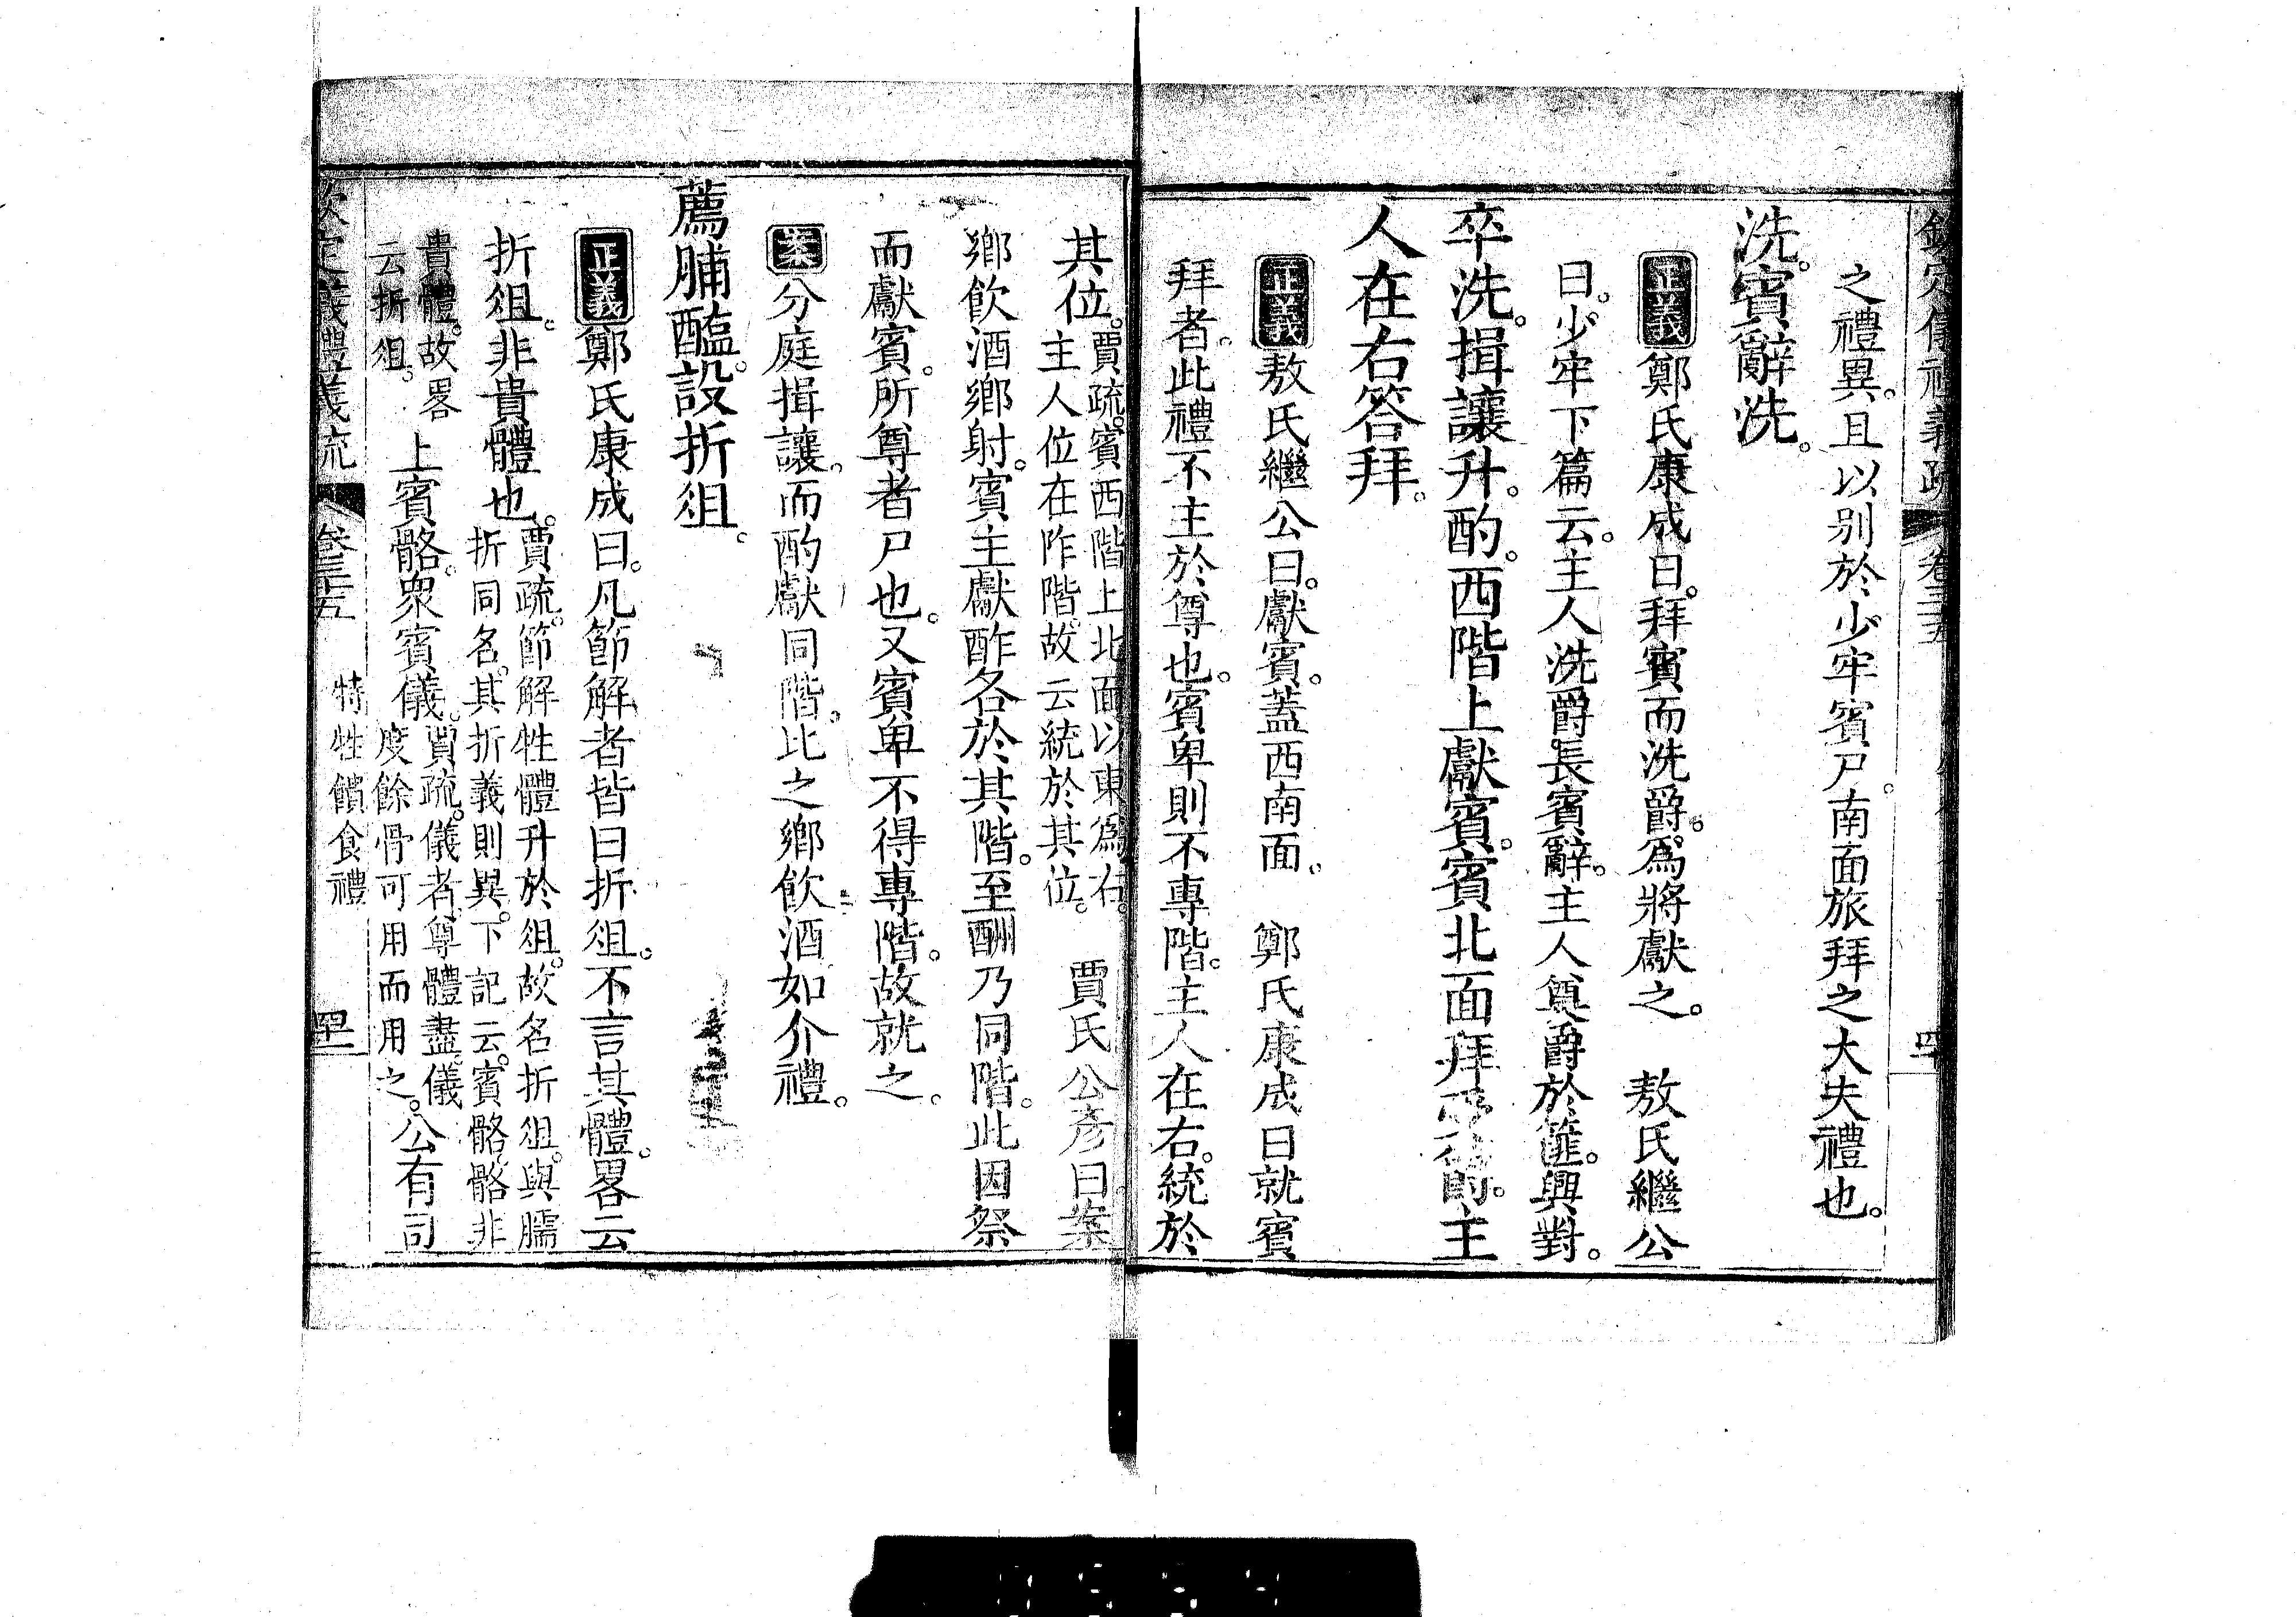 之禮異。且以别於少牢賓尸。南面旅拜之大夫禮也。
洗。賓辭洗。
正義鄭氏康成曰。拜賓而洗爵。爲將獻之。 敖氏繼公
曰。少牢下篇云。主人洗爵。長賓辭。主人奠爵於篚。興對。
卒洗。揖讓升。酌。西階上獻賓。賓北面拜受爵。主
人在右答拜。
正義敖氏繼公曰。獻賓。蓋西南面。 鄭氏康成曰就賓
拜者。此禮不主於尊也。賓卑則不專階。主人在右。統於
其位。賈疏。賓西階上北面。以東爲右。主人位在阼階。故云統於其位。 賈氏公彥曰。案
鄉飲酒鄉射。賓主獻酢各於其階。至酬乃同階。此因祭
而獻賓。所尊者尸也。又賓卑不得專階。故就之。
案分庭揖讓。而酌獻同階。比之鄉飲酒如介禮。
薦脯醢。設折俎。
正義鄭氏康成曰。凡節解者皆曰折俎。不言其體。畧云
折俎。非貴體也。賈疏。節解牲體升於俎。故名折俎。與臑折同名。其折義則異。下記云。賓骼。骼非
貴體。故畧云折俎。 上賓骼。衆賓儀。賈疏。儀者。尊體盡。儀度餘骨可用而用之。公有司
欽定儀禮義疏 卷三十五 特牲饋食禮 四十一